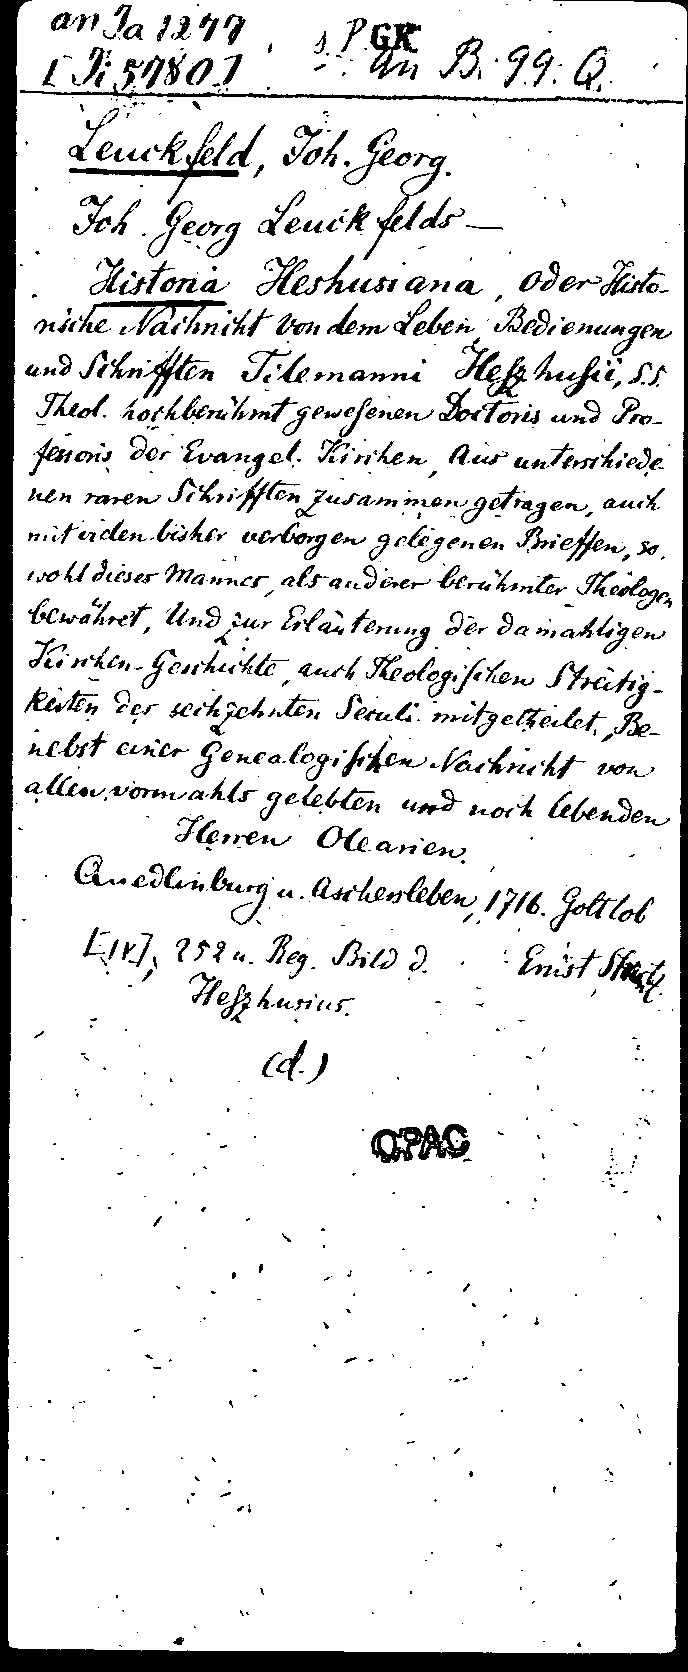 an Ja 1277 s. P. GK
[Ji 5780] an B. 99. Q.
Leuckfeld, Joh. Georg.
Joh. Georg Leuckfelds —
Historia Heshusiana, oder Histo-
rische Nachricht von dem Leben, Bedienungen
und Schrifften Tilemanni Heszhusii, S.S.
Theol. hochberühmt gewesenen Doctoris und Pro-
fessoris der Evangel. Kirchen, Aus unterschiede
nen raren Schrifften zusammen getragen, auch
mit vielen bisher verborgen gelegenen Brieffen, so,
wohl dieses Mannes, als anderer berühmter Theologen
bewähret, Und zur Erläuterung der damahligen
Kirchen-Geschichte, auch Theologischen Streitig-
keiten des sechzehnten Seculi mitgetheilet, Be-
nebst einer Genealogischen Nachricht von
allen vormahls gelebten und noch lebenden
Herren Olearien.
Quedlinburg u. Aschersleben, 1716. Gottlob
[IV], 252 u. Reg. Bild d. Ernst Strutz.
Heszhusius.
(d.)
OPAC